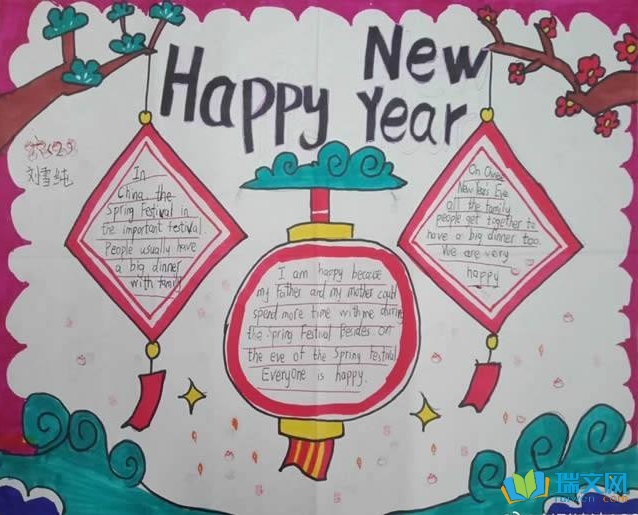 Happy New Year
刘雪纯
In
China, the
Spring Festival in
the important festival.
People usually have
a big dinner
with family
I am happy because
my father and my mother could
spend more time with me during
the Spring Festival Besides on
the eve of the Spring Festival
Everyone is happy.
On Chinese
New Year's Eve
all the family
people get together to
have a big dinner too.
We are very
happy
瑞文网